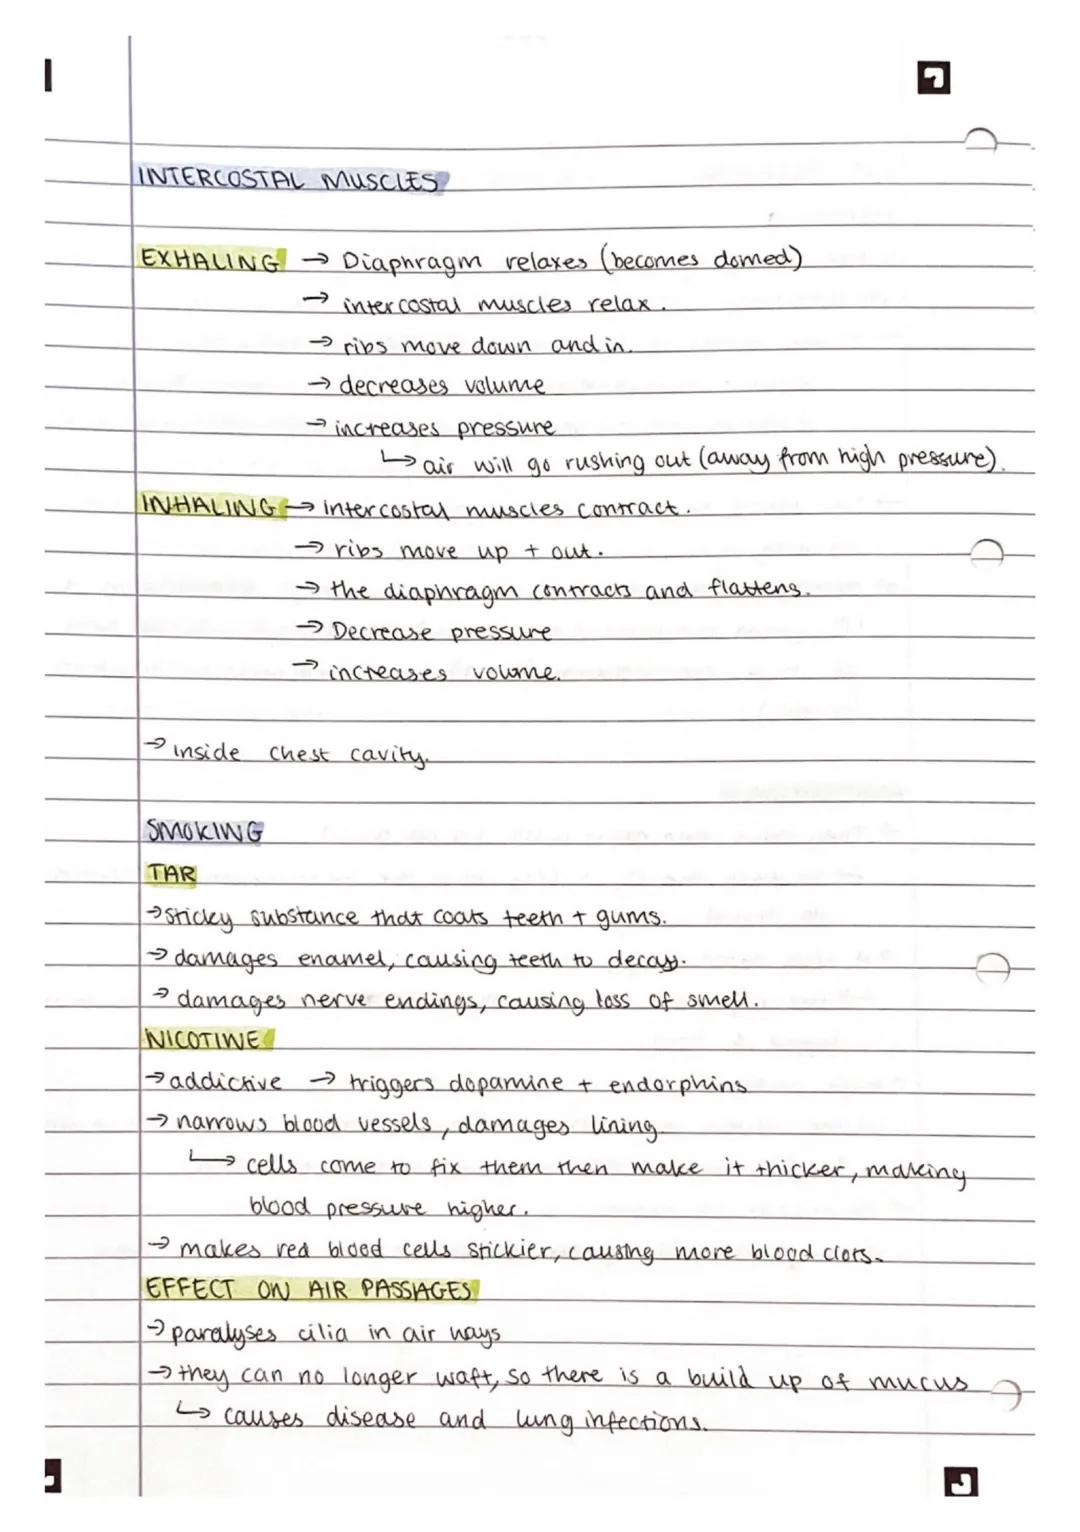 INTERCOSTAL MUSCLES
EXHALING → Diaphragm relaxes (becomes domed)
→ intercostal muscles relax.
→ ribs move down and in.
→ decreases volume
→ increases pressure
↳ air will go rushing out (away from high pressure).
INHALING → intercostal muscles contract.
→ ribs move up + out.
→ the diaphragm contracts and flattens.
→ Decrease pressure
→ increases volume.
→ inside chest cavity.
SMOKING
TAR
→ sticky substance that coats teeth + gums.
→ damages enamel, causing teeth to decay.
→ damages nerve endings, causing loss of smell.
NICOTINE
→ addictive → triggers dopamine + endorphins
→ narrows blood vessels, damages lining.
↳ cells come to fix them then make it thicker, making
blood pressure higher.
→ makes red blood cells stickier, causing more blood clots.
EFFECT ON AIR PASSAGES
→ paralyses cilia in air ways
→ they can no longer waft, so there is a build up of mucus
↳ causes disease and lung infections.